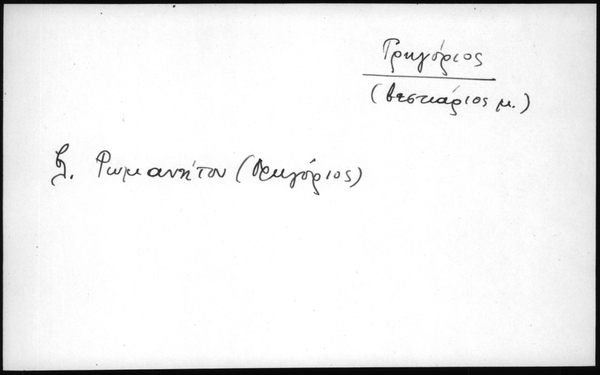 Γρηγόριος
(βεστιάριος μ.)
βλ. Ρωμανίτου (Γρηγόριος)